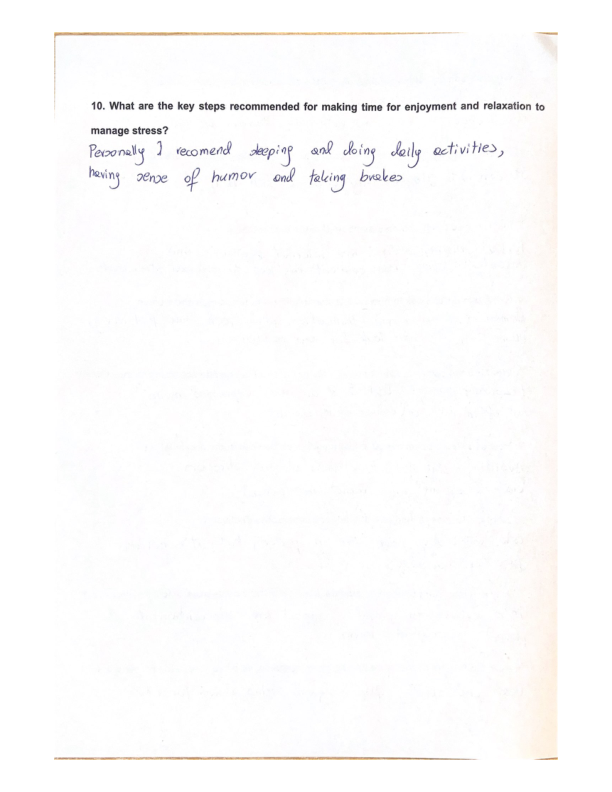 10. What are the key steps recommended for making time for enjoyment and relaxation to
manage stress?
Personally I recomend sleeping and doing daily activities,
having sense of humor and taking brakes